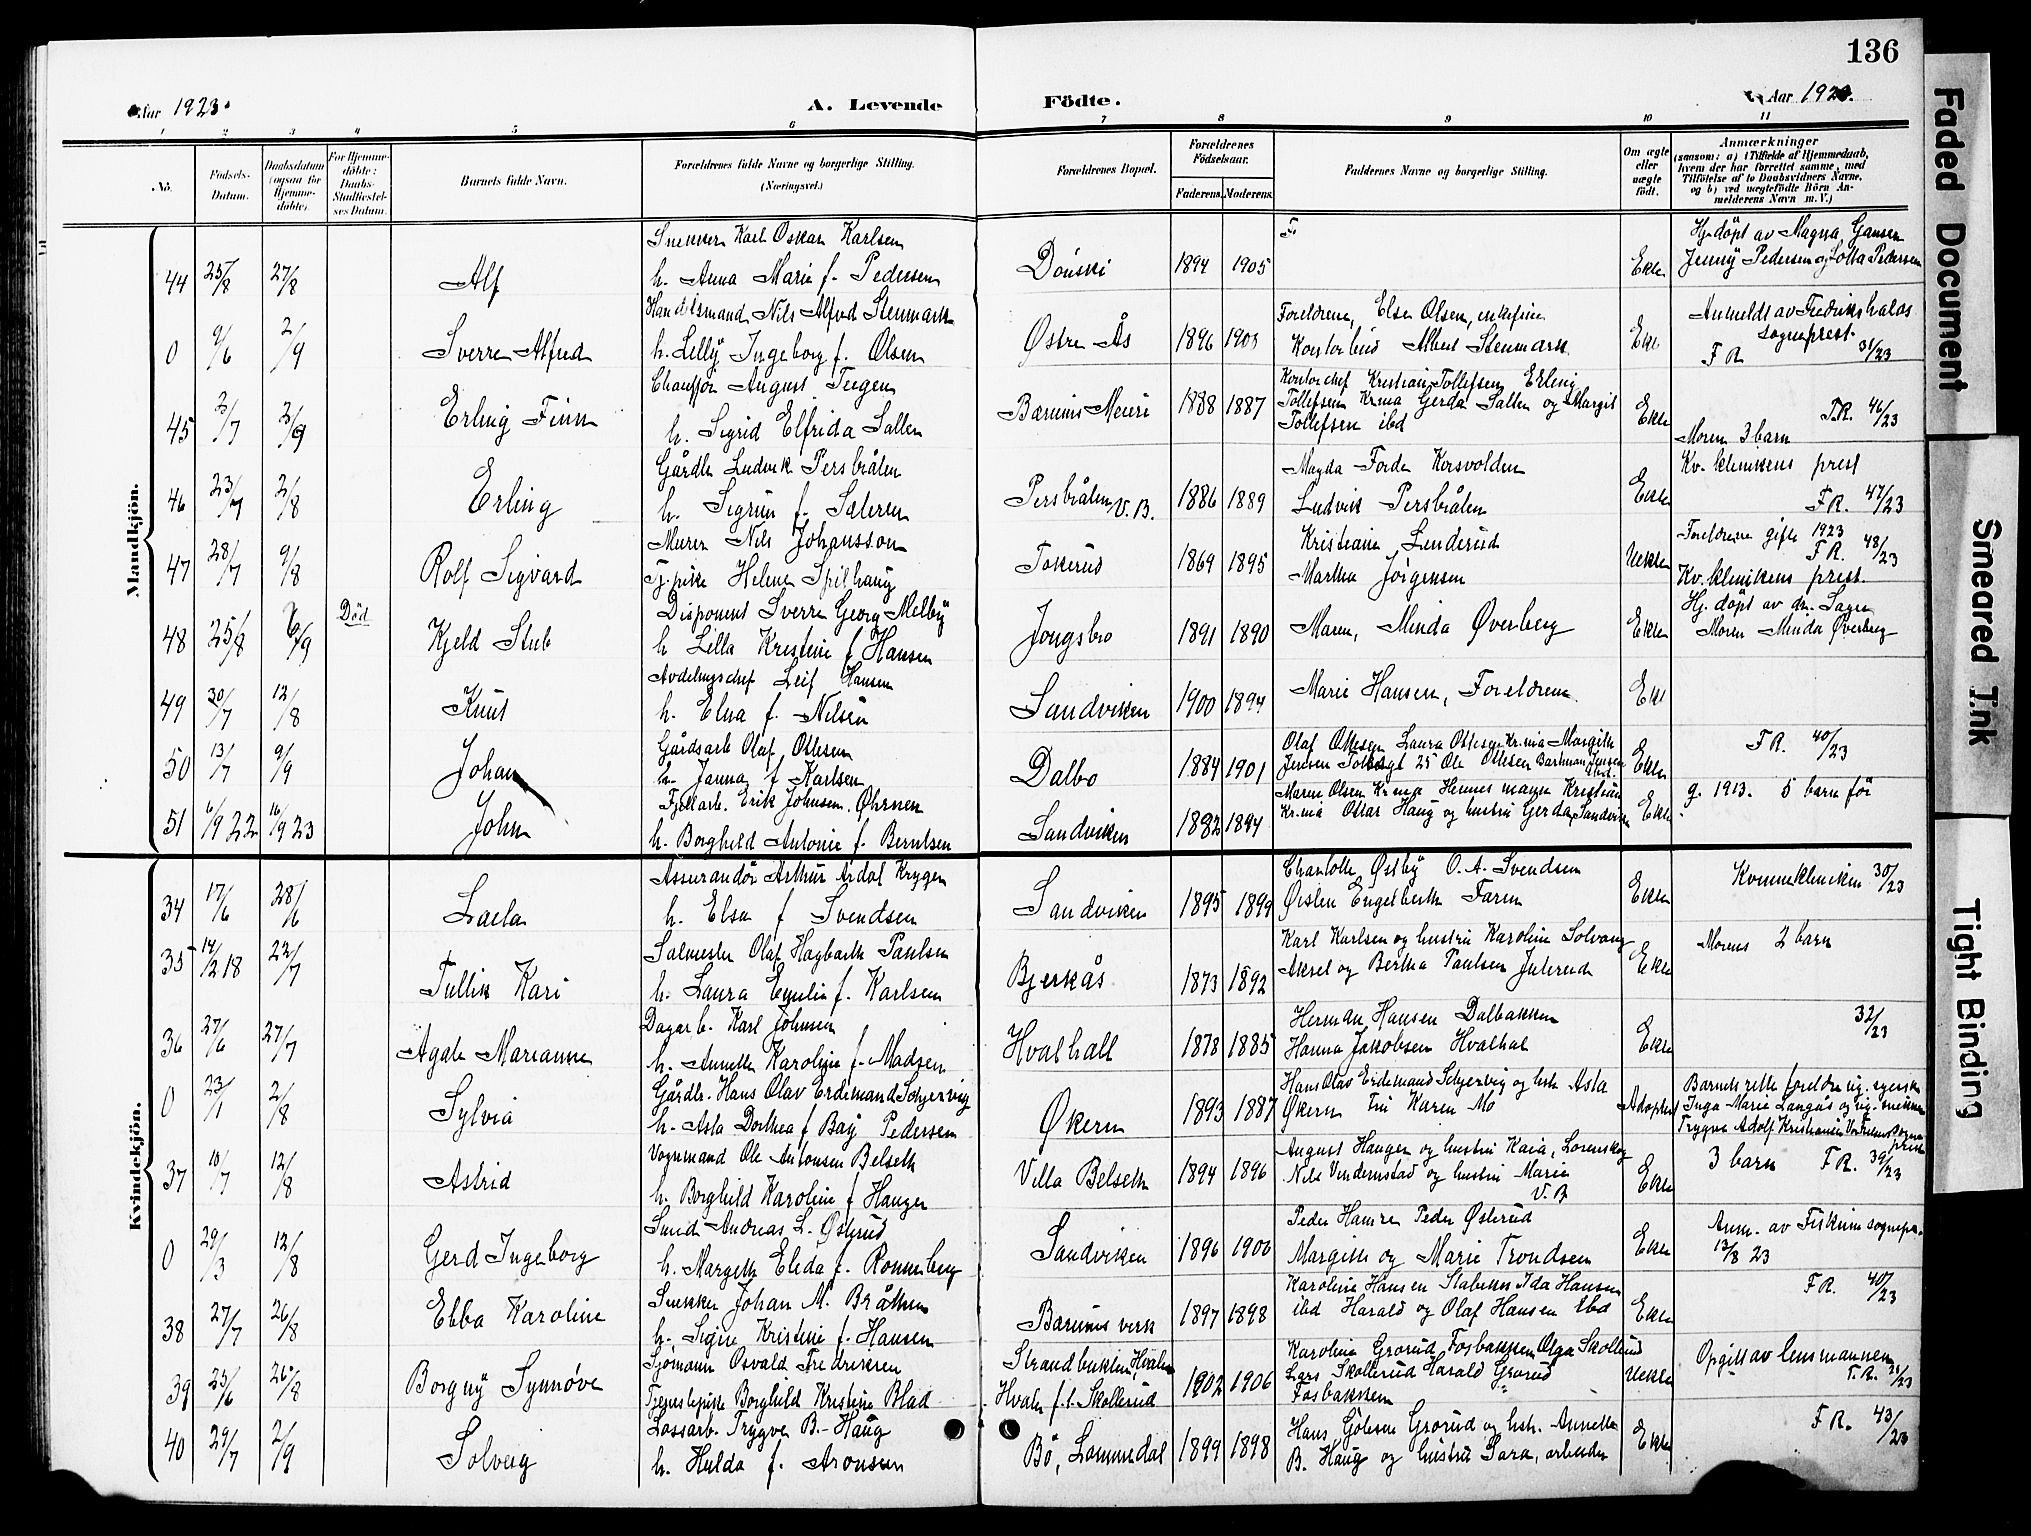 136
Aar 1923.
A. Levende
Födte.
Aar 192
1 2 3 4 5 6 7 8 9 10 11
No.
Födsels-Datum.
Daabsdatum (ogsaa for Hjemme-döbte).
For Hjemme-döbte: Daabs-Stadfæstel-ses Datum.
Barnets fulde Navn.
Forældrenes fulde Navne og borgerlige Stilling. (Næringsvei.)
Forældrenes Bopæl.
Forældrenes Födselsaar.
Faderens. Moderens.
Faddernes Navne og borgerlige Stilling.
Om ægte eller uægte födt.
Anmærkninger
(saasom: a) i Tilfælde af Hjemmedaab, hvem der har forrettet samme, med Tilföielse af to Daabsvidners Navne, og b) ved uægtefödte Börn An-melderens Navn m. V.)
Mandkjön.
44 25/8 27/8 Alf
Snekker Karl Oskar Karlsen
h. Anna Marie f. Pedersen
Dönski 1894 1905
F
Ekte
Hj. döpt av Magna Hansen
Jenny Pedersen og Lolla Pedersen
0 9/6 2/9 Sverre Alfred
Handelsmand Nils Alfred Stenmark
h. Lilly Ingeborg f. Olsen
Østre Ås 1896 1903
Foreldrene, Else Olsen, enkefrue
Kontorbud Albert Stenmark
Ekte
Anmeldt av Fredrikshalds
sogneprest.
F R 31/23
45 2/7 2/9 Erling Finn
Chauffør August Teigen
h. Sigrid Elfrida Sallen
Bærums Meieri 1888 1887
Kontorchef Kristian Tollefsen Erling
Tollefsen Kr.ma Gerda Sallen og Margit
Tollefsen ibd
Ekte
F.R. 46/23
Moren 3 barn
46 23/7 2/8 Erling
Gårdbr Ludvik Persbråten
h. Sigrun f. Sæteren
Persbråten V.B. 1886 1889
Magda Forde Korsvolden
Ludvik Persbråten
Ekte
Kv. klinikens prest
F R. 47/23
47 28/7 9/8 Rolf Sigvard
Murer Nils Johansson
Tj. pike Helene Spilhaug
Tokerud 1869 1895
Kristiane Lunderud
Martha Jörgensen
Uekte
Foreldrene gifte 1923
F R. 48/23
Kv. klinikens prest.
48 25/8 6/9 Död Kjeld Stub
Disponent Sverre Georg Melby
h Lilla Kristine f Hansen
Jongsbro 1891 1890
Maren, Minda Øverberg
Ekte
Hj. döpt av dr. Sagen
Moren Minda Øverberg
49 30/7 12/8 Knut
Avdelingschef Leif Hansen
h. Elna f. Nilsen
Sandviken 1900 1894
Marie Hansen, Foreldrene
Ekt
50 13/7 9/9 Johan
Gårdsarb Olaf Ottesen
h. Janna f Karlsen
Dalbo 1884 1901
Olaf Ottesen Laura Ottesen Kr.nia Margith
Jensen Tolbugt 25 Ole Ottesen Bartman Jensen
Ekte
F R. 40/23
51 6/9 22 16/9 23 John
Fjellarb. Erik Johnsen Øhrnen
h. Borghild Antonie f. Berntsen
Sandviken 1882 1894
Maren Olsen Kr.nia Hennes mann Kristian
Kr.nia Oskar Haug og hustru Gerda, Sandviken
Ekte
g. 1913. 5 barn för
Kvindekjön.
34 17/6 28/6 Laela
Assurandör Arthur Ardal Krygen
h. Elsa f Svendsen
Sandviken 1895 1899
Charlotte Østby O. A. Svendsen
Øislen Engelberth Faren
Ekte
Kvinnekliniken 30/23
35 14/2 18 22/7 Tullik Kari
Salmester Olaf Hagbarth Paulsen
h. Laura Emilie f. Karlsen
Bjerkås 1873 1892
Karl Karlsen og hustru Karoline Solvang
Aksel og Bertha Paulsen Julerud
Ekte
Morens 2 barn
36 27/6 27/7 Agate Marianne
Dagarb. Karl Johnsen
h. Annette Karoline f. Madsen
Hvalhall 1878 1885
Herman Hansen Dalbakken
Hanna Jakobsen Hvalhal
Ekte
32/23
0 23/1 2/8 Sylvia
Gårdbr. Hans Olav Erdemand Schjervig
h. Asta Dorthea f Bay Pedersen
Økern 1893 1887
Hans Olav Erdemand Schjervig og hstr. Asta
Økern Fru Karen Mo
Adoptert
Barnets rette foreldre
Inga Marie Langås og
Trygve Adolf Kristiansen
prest
37 10/7 12/8 Astrid
Vognmand Ole Antonsen Belseth
h. Borghild Karoline f Haugen
Villa Belseth 1894 1896
August Haugen og hustru Kaia, Lorenskog
Nils Vindernstad og hustru Marie
V. B
Ekte
3 barn F R. 39/23
0 29/3 12/8 Gerd Ingeborg
Andreas L. Østerud
h. Margith Elida f. Ronneberg
Sandviken 1896 1900
Peder Hamre Peder Østerud
Margith og Marie Trondsen
Ekte
Anm. av Fiskum sognepr.
13/8 23
38 27/7 26/8 Ebba Karoline
Snekker Johan M. Bråthen
h. Signe Kristine f. Hansen
Bærums verk 1897 1898
Karoline Hansen Stabekk Ida Hansen
ibd Harald og Olaf Hansen ibd
Ekte
F R. 40/23
39 25/6 26/8 Borgny Synnöve
Sjömann Osvald Fredriksen
Tjenestepike Borghild Kristine Blad
Strandbukten, Hvaler
Hvaler f.t. Skollerud 1902 1906
Karoline Grorud Fosbakken Olga Skollerud
Lars Skollerud Harald Grorud
Fosbakken
Uekte
Opgitt av lensmannen
F.R. 21/23
40 29/7 2/9 Solveig
Lossarb. Trygve B. Haug
h. Hulda f. Aronsen
Bö, Lommedal 1899 1898
Hans Göbsen Grorud og hstr. Annette
B. Haug og hustru Sara, arbeider
Ekte
F R. 43/23
Faded Document
Smeared Ink
Tight Binding